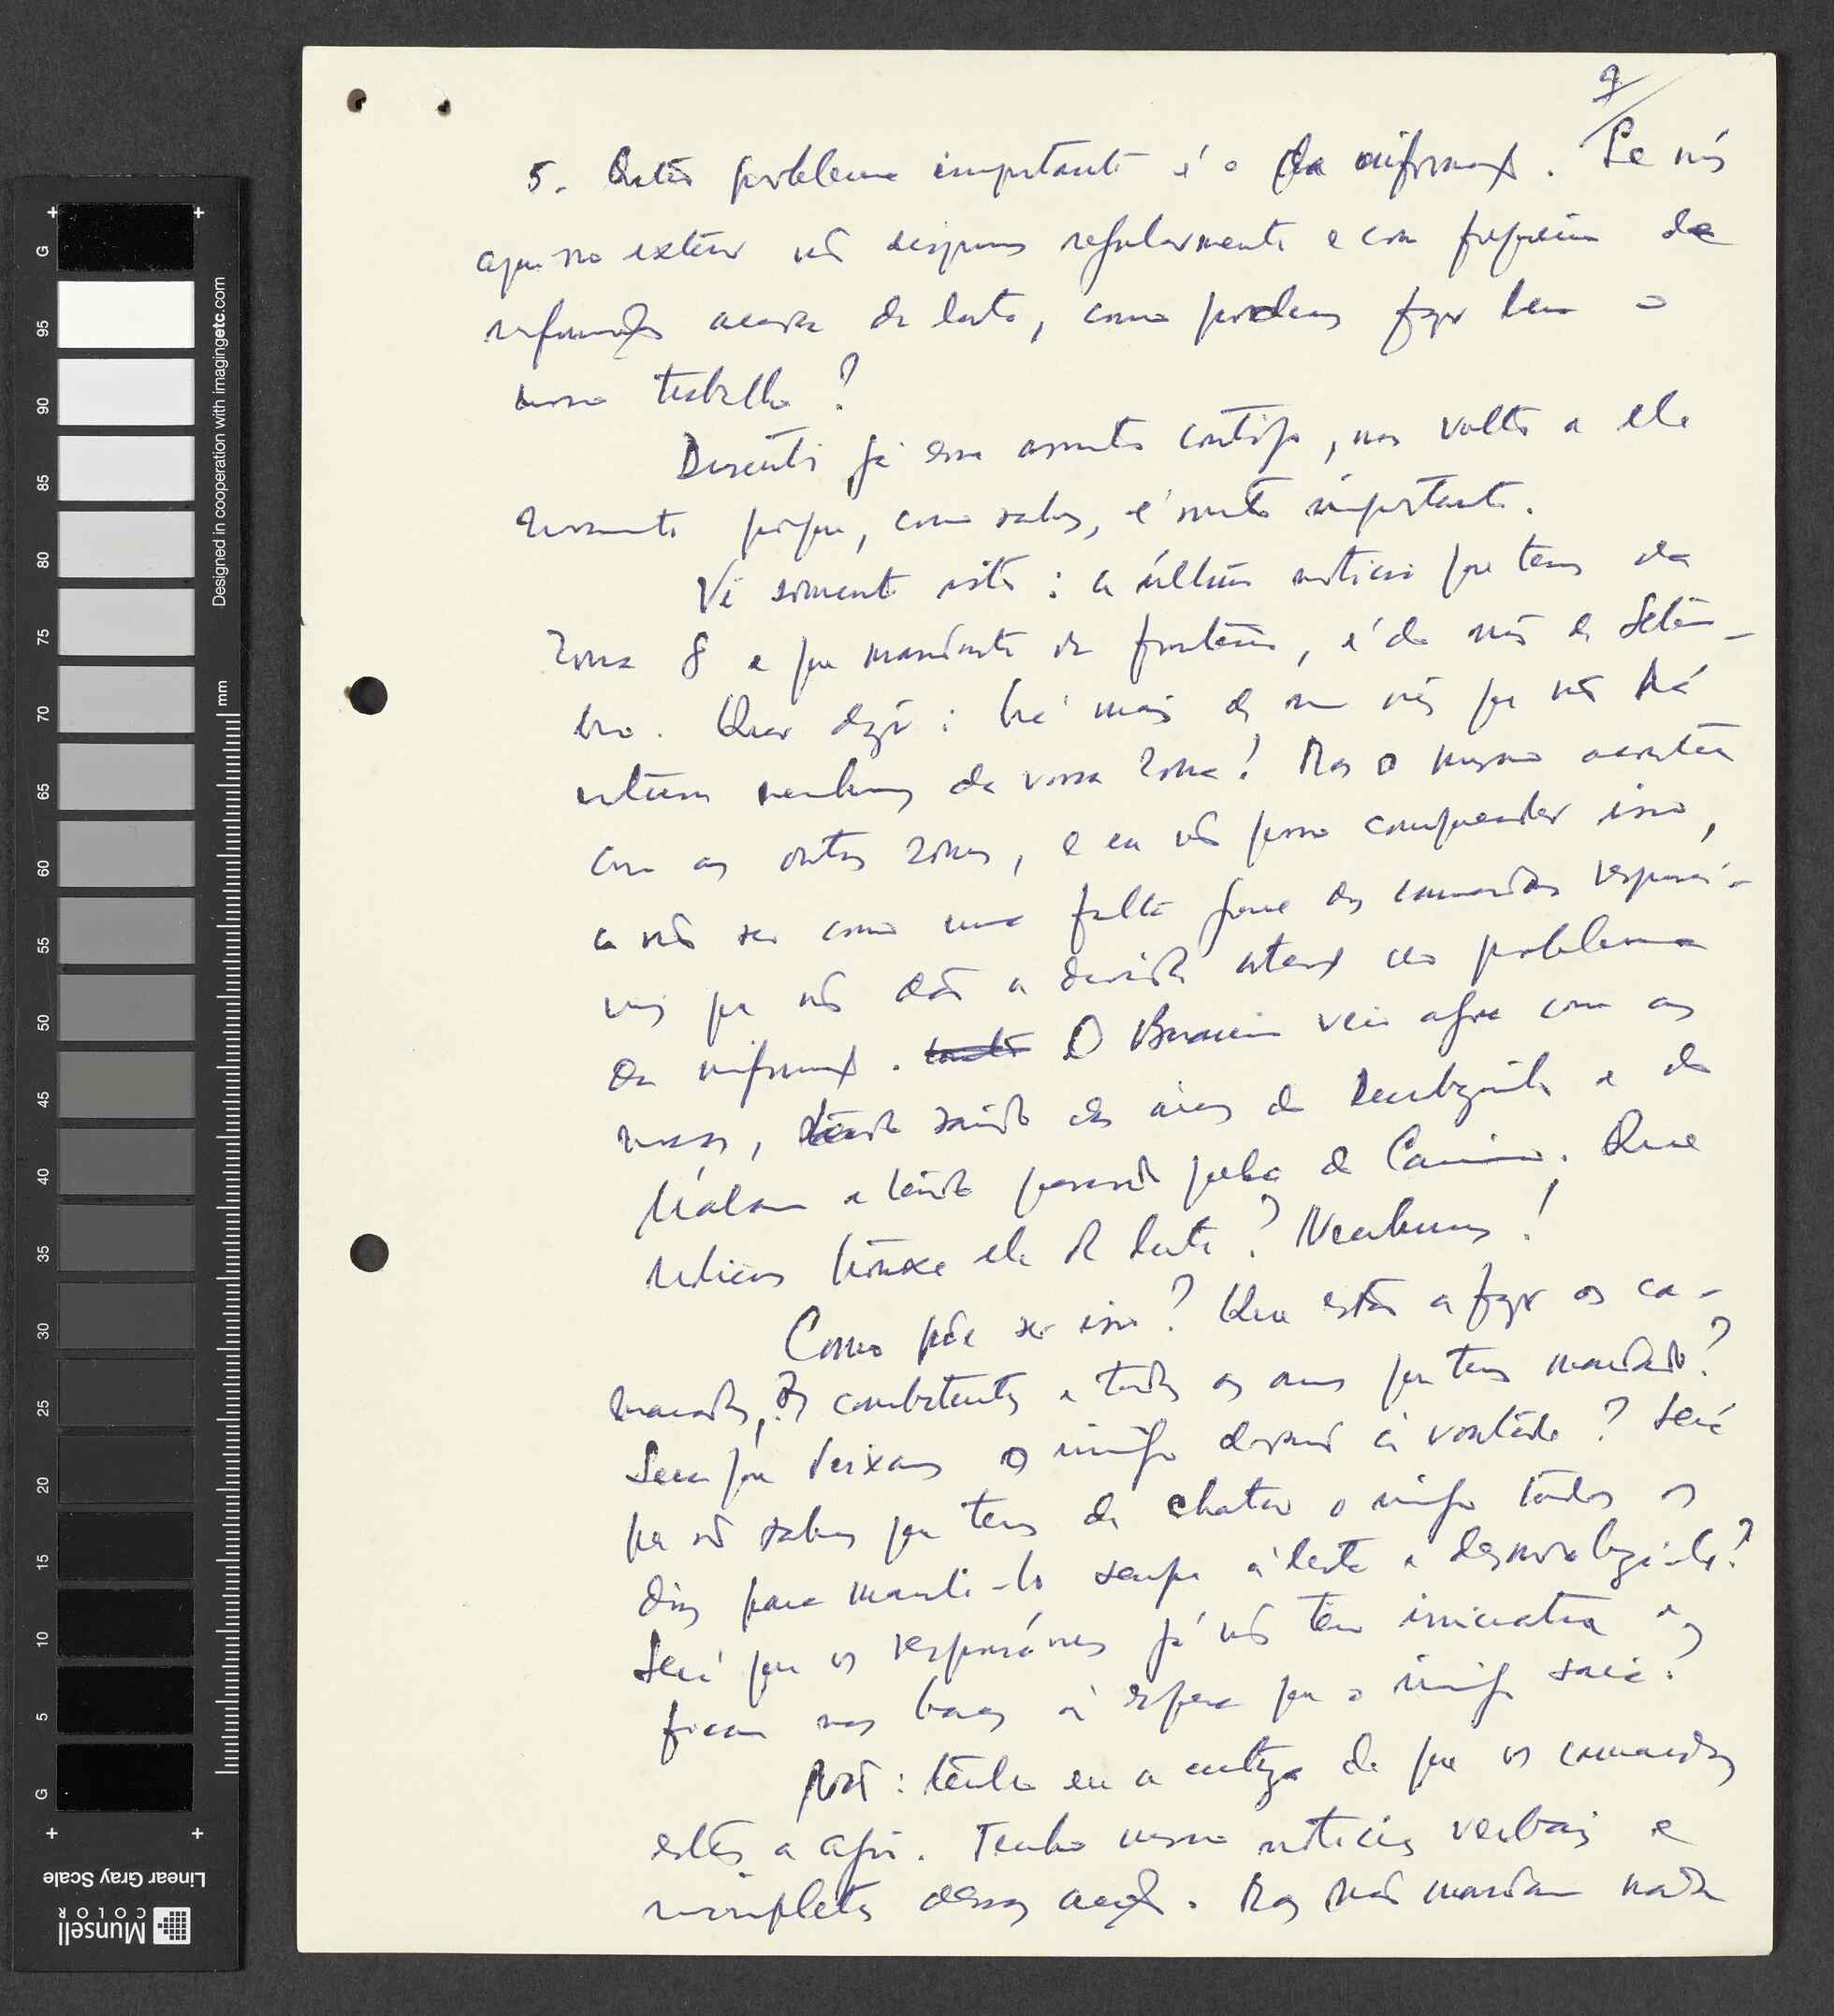 9
5. Outro problema importante é o da informação. Se nós
aqui no exterior não dispomos regularmente e com frequência de
informações acerca da luta, como podemos fazer bem o
nosso trabalho?
Discuti já esse assunto contigo, mas volto a ele
novamente porque, como sabes, é muito importante.
Vê somente isto: a última notícia que temos da
Zona 8 e que mandaste da fronteira, é do mês de Setem-
bro. Quer dizer: há mais de um mês que não há
notícias nenhumas da vossa zona! Mas o mesmo acontece
com as outras zonas, e eu não posso compreender isso,
a não ser como uma falta grave dos camaradas responsá-
veis que não dão a devida atenção ao problema
da informação. O veio agora com as
massas, tendo saído das áreas de e de
e tendo passado pela de . Que
notícias trouxe ele da luta? Nenhumas!
Como pode ser isso? Que estão a fazer os ca-
maradas, os combatentes e todas as armas que temos mandado?
Será que deixamos o inimigo dormir à vontade? Será
que não sabemos que temos de chatear o inimigo todos os
dias para mantê-lo sempre alerta e desmoralizá-lo?
Será que os responsáveis já não têm iniciativa e
ficam nas bases à espera que o inimigo saia?
Não: tenho eu a certeza de que os camaradas
estão a agir. Tenho mesmo notícias verbais e
incompletas dessas acções. Mas não mandam nada
Designed in cooperation with imagingetc.com
mm
G 95 90 85 80 75 70 65 60 55 50 45 40 35 30 25 20 15 10 5 G
Linear Gray Scale
Munsell
COLOR